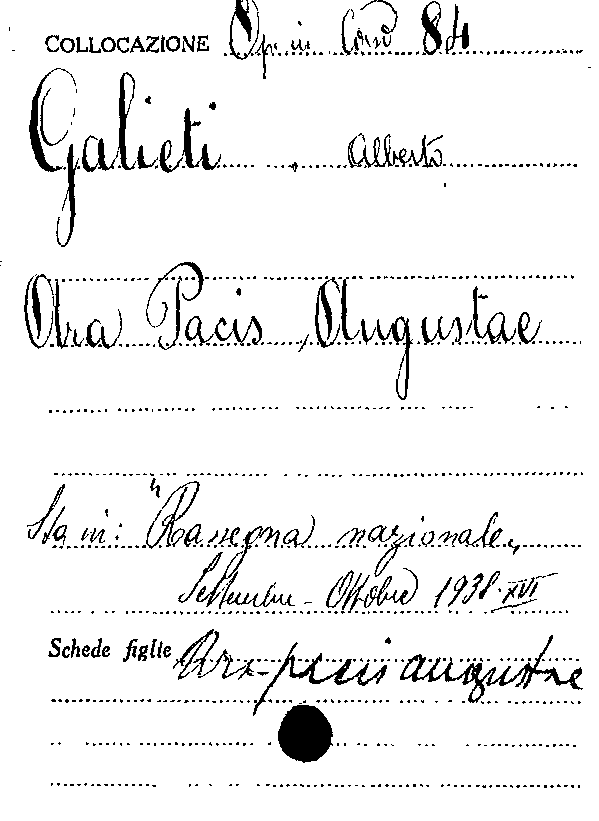 COLLOCAZIONE Op. in Cors 84
Galieti, Alberto
Ara Pacis Augustae
Sta in: "Rassegna nazionale"
Settembre - Ottobre 1938 - XVI
Schede figlie Ara pacis augustae